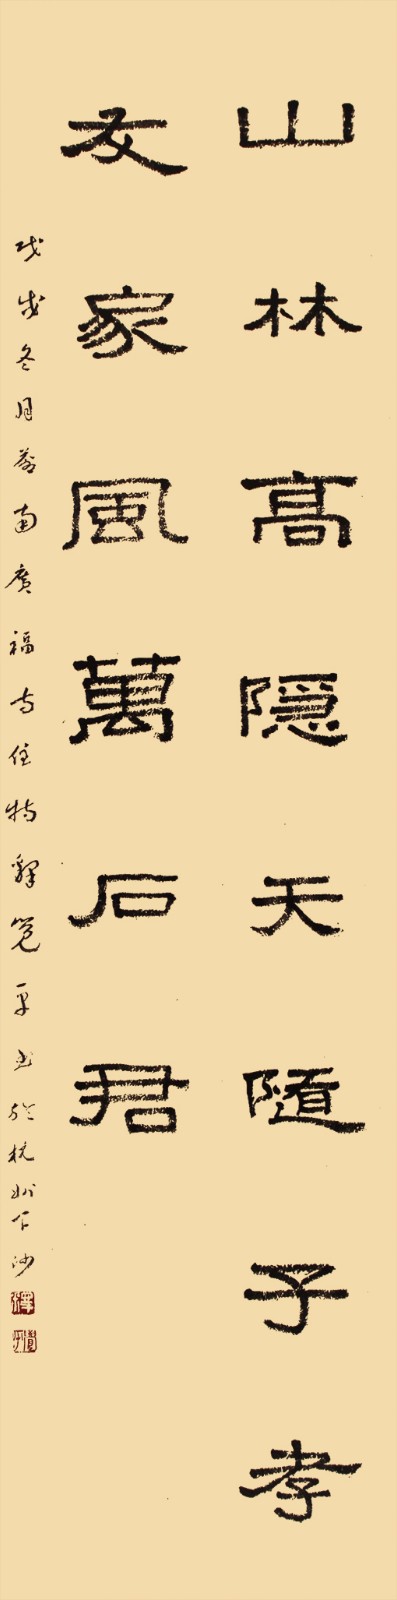 山林高隐天隨子孝
友家風萬石君
戊戌冬月蒼南廣福寺住持釋覺平书於杭州下沙